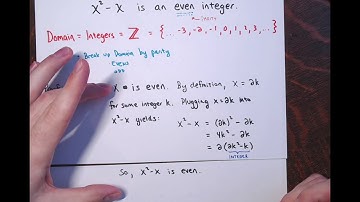 X² - X is an even integer.
parity
Domain = Integers = ℤ = {... -3, -2, -1, 0, 1, 2, 3, ...}
Break up Domain by parity
Evens
odd
X is even. By definition, X = 2k
for some integer k. Plugging x=2k into
X²-X yields: X² - X = (2k)² - 2k
= 4k² - 2k
= 2(2k²-k)
INTEGER
So, X²-X is even.